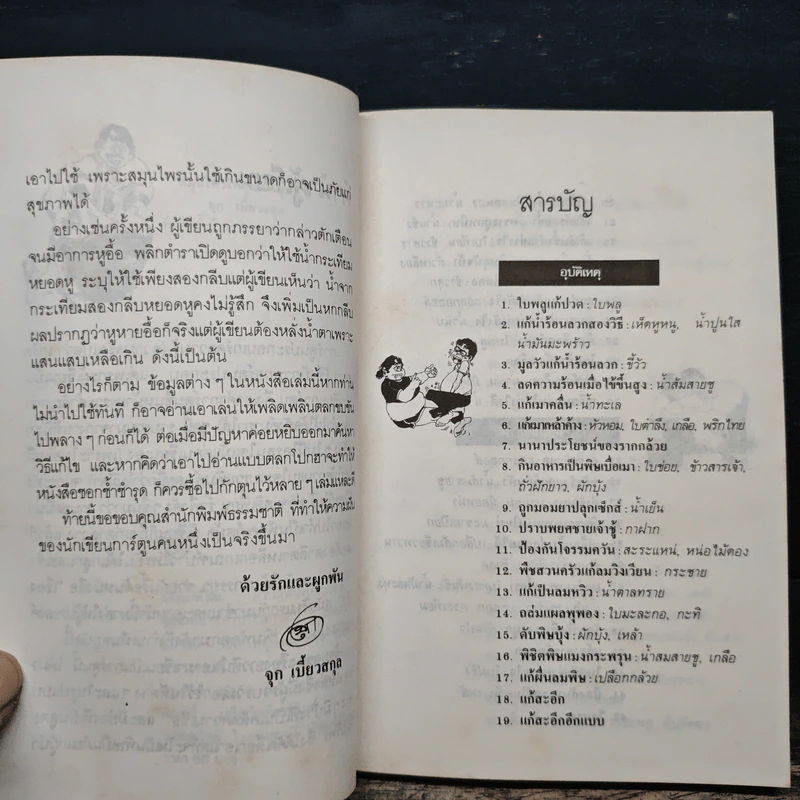 เอาไปใช้ เพราะสมุนไพรนั้นใช้เกินขนาดก็อาจเป็นภัยแก่
สุขภาพได้
อย่างเช่นครั้งหนึ่ง ผู้เขียนถูกภรรยาว่ากล่าวตักเตือน
จนมีอาการหูอื้อ พลิกตำราเปิดดูบอกว่าให้ใช้น้ำกระเทียม
หยอดหู ระบุให้ใช้เพียงสองกลีบแต่ผู้เขียนเห็นว่า น้ำจาก
กระเทียมสองกลีบหยอดหูคงไม่รู้สึก จึงเพิ่มเป็นหกกลีบ
ผลปรากฏว่าหูหายอื้อก็จริงแต่ผู้เขียนต้องหลั่งน้ำตาเพราะ
แสนแสบเหลือเกิน ดังนี้เป็นต้น
อย่างไรก็ตาม ข้อมูลต่างๆในหนังสือเล่มนี้หากท่าน
ไม่นำไปใช้ทันที ก็อาจอ่านเอาเล่นให้เพลิดเพลินตลกขบขัน
ไปพลางๆก่อนก็ได้ ต่อเมื่อมีปัญหาค่อยหยิบออกมาค้นหา
วิธีแก้ไข และหากคิดว่าเอาไปอ่านแบบตลกโปกฮาจะทำให้
หนังสือชอกช้ำชำรุด ก็ควรซื้อไปกักตุนไว้หลายๆเล่มแหละดี
ท้ายนี้ขอขอบคุณสำนักพิมพ์ธรรมชาติ ที่ทำให้ความฝัน
ของนักเขียนการ์ตูนคนหนึ่งเป็นจริงขึ้นมา
ด้วยรักและผูกพัน
จุก เบี้ยวสกุล
สารบัญ
อุบัติเหตุ
1. ใบพลูแก้ปวด : ใบพลู
2. แก้น้ำร้อนลวกสองวิธี : เห็ดหูหนู, น้ำปูนใส
น้ำมันมะพร้าว
3. มูลวัวแก้น้ำร้อนลวก : ขี้วัว
4. ลดความร้อนเมื่อไข้ขึ้นสูง : น้ำส้มสายชู
5. แก้เมาคลื่น : น้ำทะเล
6. แก้เมาเหล้าค้าง : หัวหอม, ใบตำลึง, เกลือ, พริกไทย
7. นานาประโยชน์ของรากกล้วย
8. กินอาหารเป็นพิษเบื่อเมา : ใบข่อย, ข้าวสารเจ้า,
ถั่วฝักยาว, ผักบุ้ง
9. ถูกมอมยาปลุกเซ็กส์ : น้ำเย็น
10. ปราบพยศชายเจ้าชู้ : กาฝาก
11. ป้องกันโจรรมควัน : สะระแหน่, หน่อไม้ดอง
12. พืชสวนครัวแก้ลมวิงเวียน : กระชาย
13. แก้เป็นลมหวิว : น้ำตาลทราย
14. ถล่มแผลพุพอง : ใบมะละกอ, กะทิ
15. ดับพิษบุ้ง : ผักบุ้ง, เหล้า
16. พิชิตพิษแมงกระพรุน : น้ำสมสายชู, เกลือ
17. แก้ผื่นลมพิษ : เปลือกกล้วย
18. แก้สะอึก
19. แก้สะอึกอีกแบบ